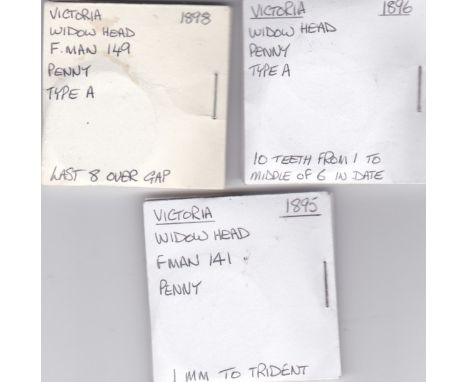 VICTORIA 1898
WIDOW HEAD
F.MAN 149
PENNY
TYPE A
LAST 8 OVER GAP
VICTORIA 1896
WIDOW HEAD
PENNY
TYPE A
10 TEETH FROM 1 TO
MIDDLE OF 6 IN DATE
VICTORIA 1895
WIDOW HEAD
FMAN 141
PENNY
1 MM TO TRIDENT